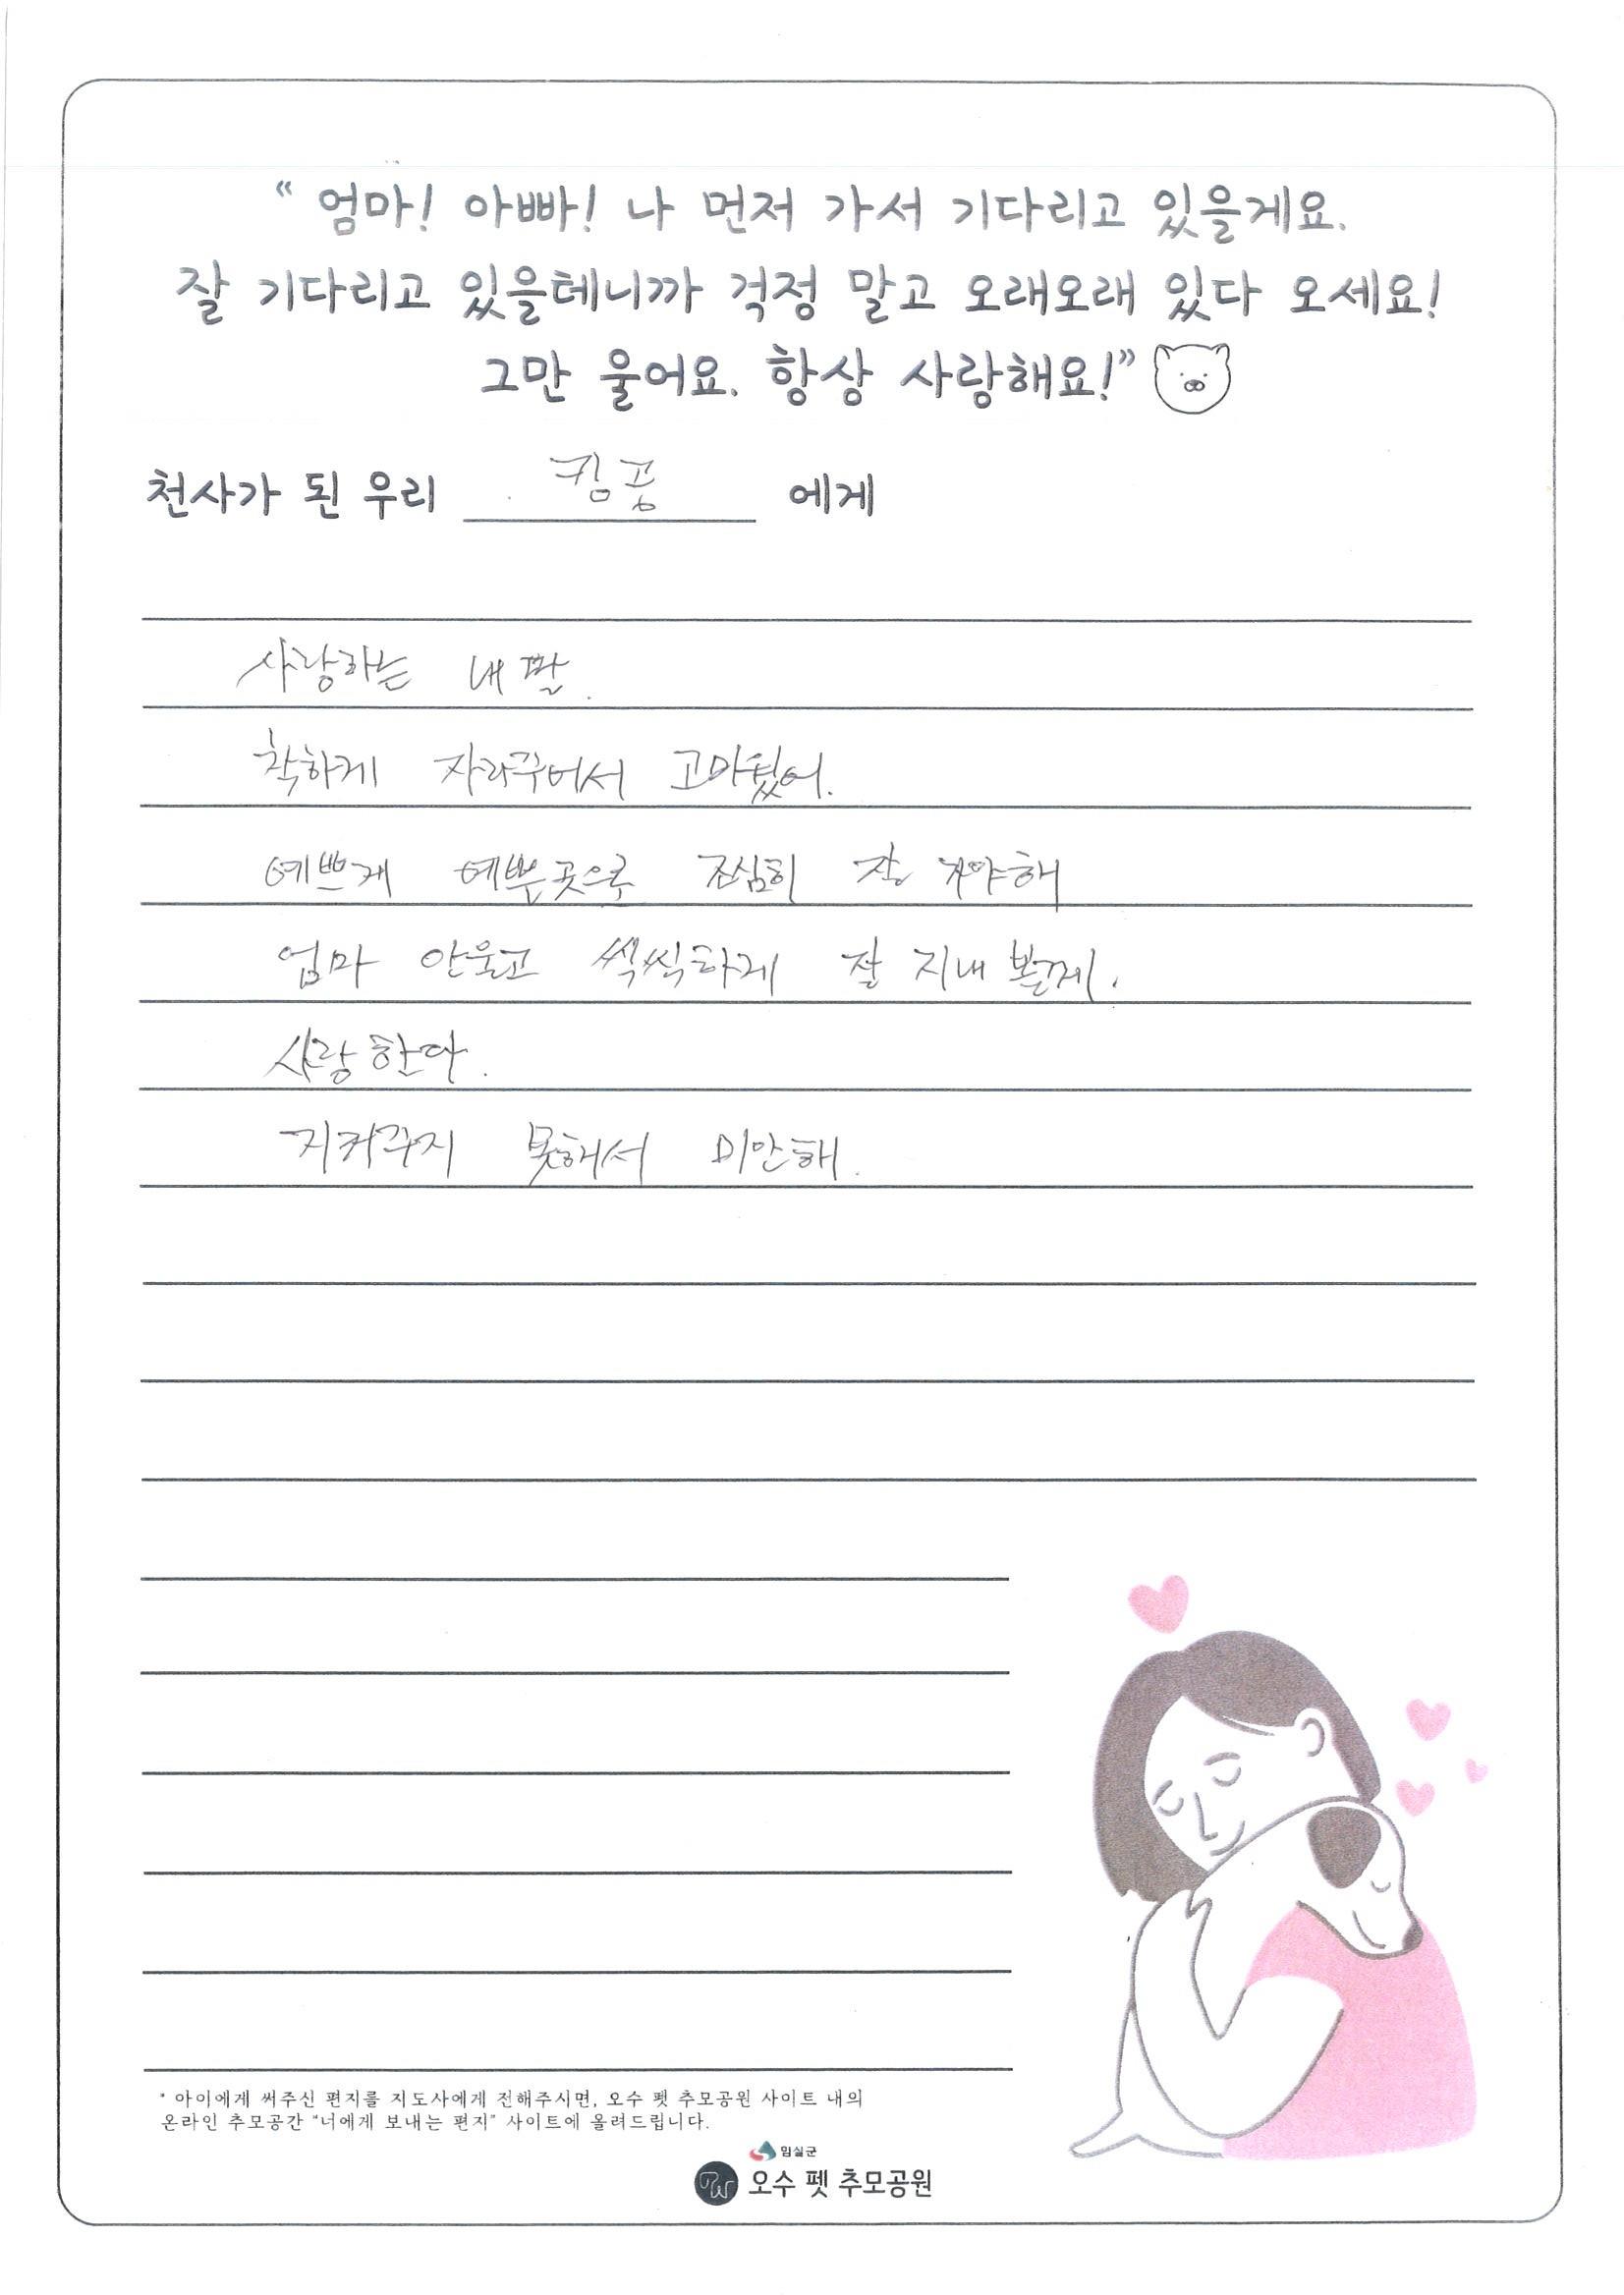 “ 엄마! 아빠! 나 먼저 가서 기다리고 있을게요.
잘 기다리고 있을테니까 걱정 말고 오래오래 있다 오세요!
그만 울어요. 항상 사랑해요!”
천사가 된 우리 킴콩 에게
사랑하는 내 딸.
착하게 자라주어서 고마웠어.
예쁘게 예쁜곳으로 조심히 잘 가야해
엄마 안울고 씩씩하게 잘 지내 볼게.
사랑한다.
지켜주지 못해서 미안해.
* 아이에게 써주신 편지를 지도사에게 전해주시면, 오수 펫 추모공원 사이트 내의
온라인 추모공간 “너에게 보내는 편지” 사이트에 올려드립니다.
임실군
오수 펫 추모공원